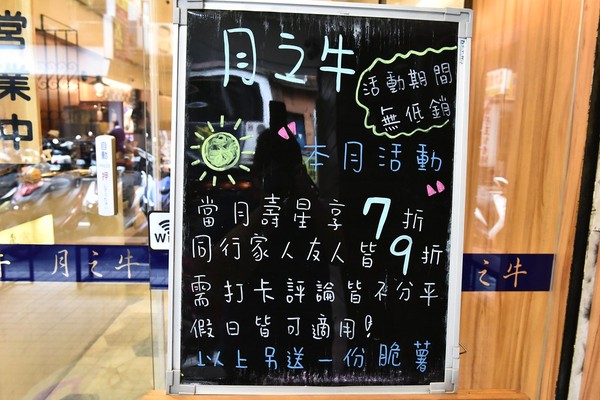 月之牛
活動期間
無低銷
本月活動
當月壽星享7折
同行家人友人皆9折
需打卡評論皆不分平
假日皆可適用!
以上另送一份脆薯
營業中
自動
押
Wi
月之牛
之牛